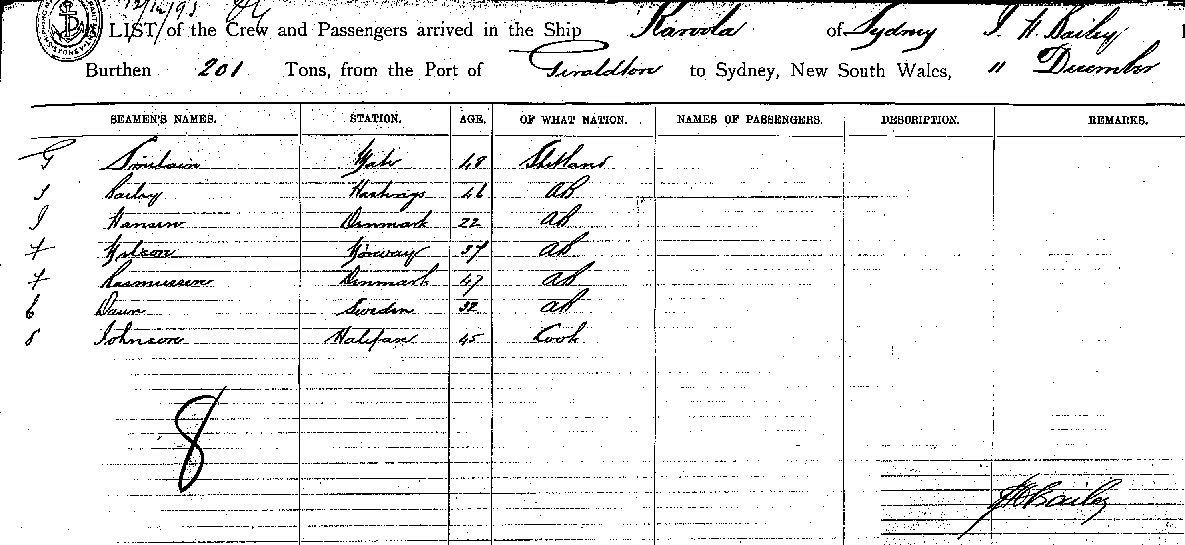 LIST of the Crew and Passengers arrived in the Ship Karoola of Sydney J. H. Bailey
Burthen 201 Tons, from the Port of Geraldton to Sydney, New South Wales, 11 December
SEAMEN'S NAMES. STATION. AGE. OF WHAT NATION. NAMES OF PASSENGERS. DESCRIPTION. REMARKS.
G 48 Shetland
J Bailey Hastings 46 AB
J Hansen Denmark 22 AB
Nelson Norway 37 AB
Rasmussen Denmark 47 AB
Daun Sweden 32 AB
Johnson Halifax 45 Cook
8
Bailey